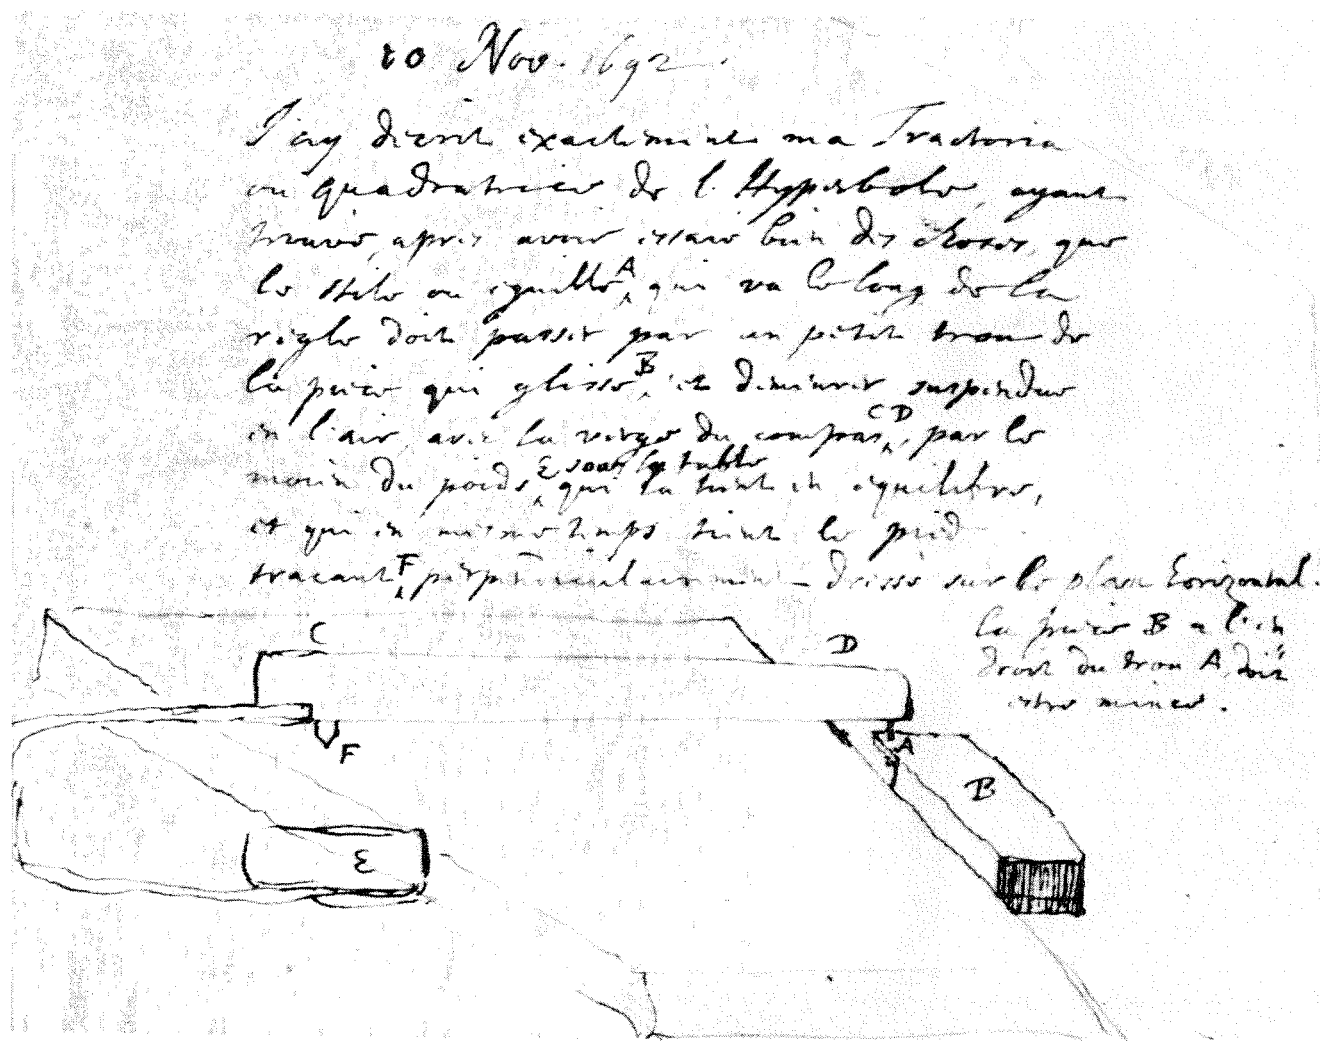 10 Nov. 1692.
J'ay descrit exactement ma Tractoria
ou quadratrice de l'Hyperbole, ayant
trouvè, apres avoir essaiè bien des choses, que
le stile ou eguille A, qui va le long de la
regle doit passer par un petit trou de
la piece qui glisse B, et demeurer suspendue
en l'air avec la verge du compas CD, par le
moien du poids E sous la table, qui la tient en equilibre,
et qui en mesme temps tient le pied
tracant F perpendiculairement dressè sur le plan horizontal.
la piece B a l'en
droit du trou A doit
estre mince.
C
D
F
A
B
E